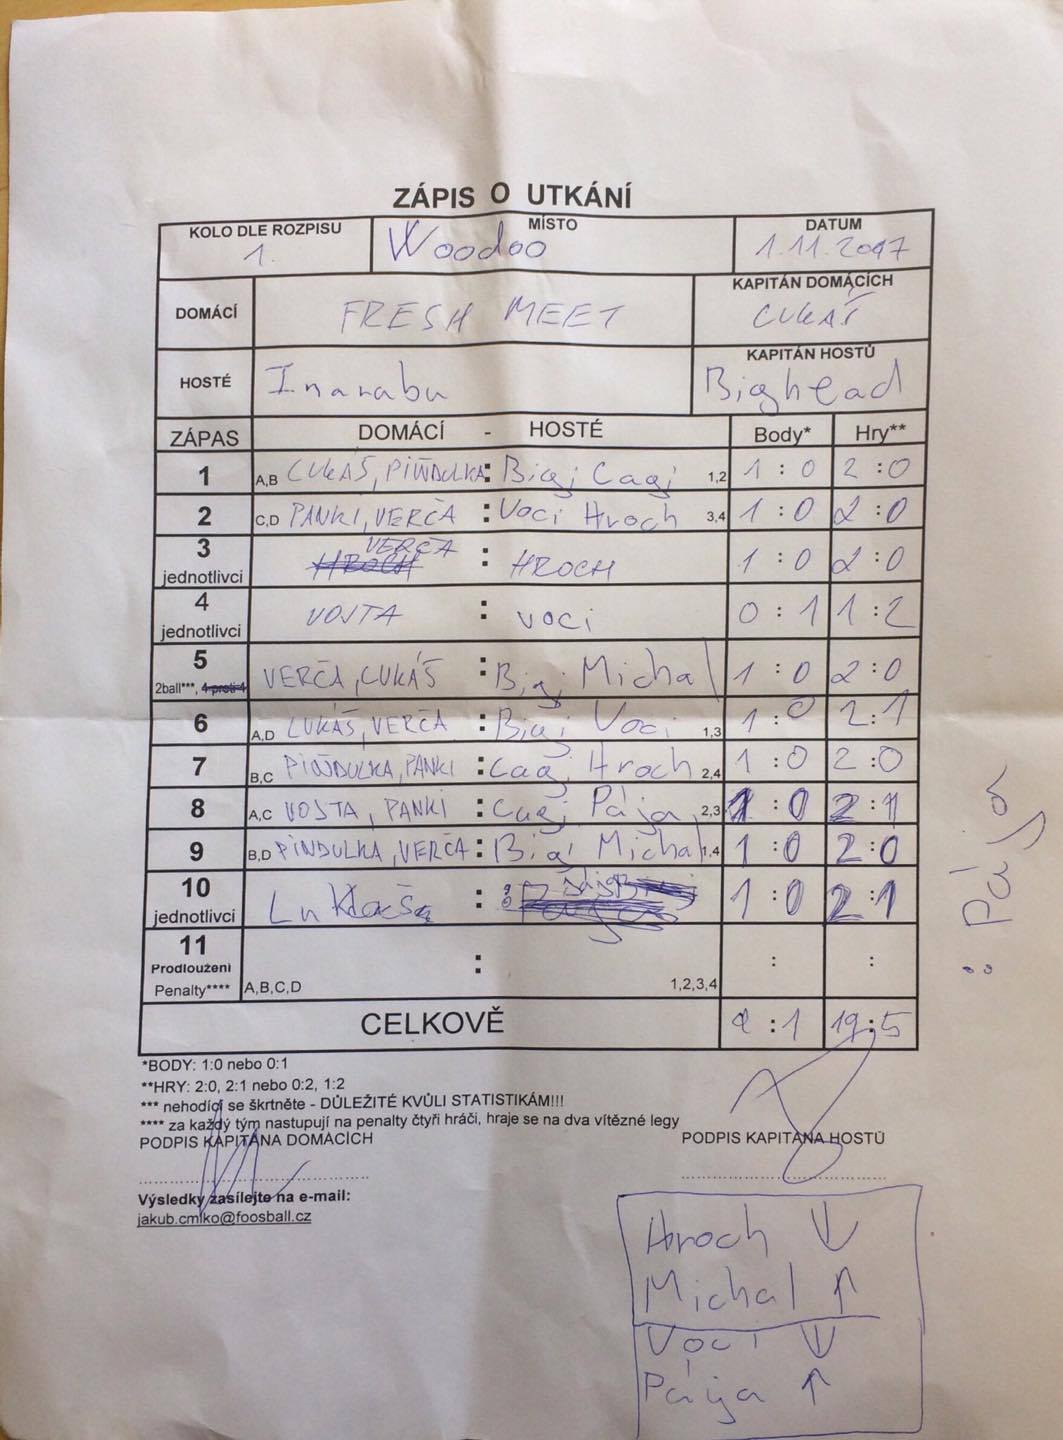 ZÁPIS O UTKÁNÍ
KOLO DLE ROZPISU MÍSTO DATUM
1. Woodoo 1.11.2017
DOMÁCÍ FRESH MEET KAPITÁN DOMÁCÍCH
LUKÁŠ
HOSTÉ Inanabu KAPITÁN HOSTŮ
Bighead
ZÁPAS DOMÁCÍ - HOSTÉ Body* Hry**
1 A,B LUKÁŠ, PIŇDULKA : Bigi Cagi 1,2 1 : 0 2 : 0
2 C,D PANKI, VERČA : Voci Hroch 3,4 1 : 0 2 : 0
3 jednotlivci HROCH VERČA : HROCH 1 : 0 2 : 0
4 jednotlivci VOJTA : voci 0 : 1 1 : 2
5 2ball***, 4 proti 4 VERČA, LUKÁŠ : Bigi Michal 1 : 0 2 : 0
6 A,D LUKÁŠ, VERČA : Bigi Voci 1,3 1 : 0 2 : 1
7 B,C PIŇDULKA, PANKI : Cagi Hroch 2,4 1 : 0 2 : 0
8 A,C VOJTA, PANKI : Cagi Pája 2,3 1 : 0 2 : 1
9 B,D PINDULKA, VERČA : Bigi Michal 1,4 1 : 0 2 : 0
10 jednotlivci : 1 : 0 2 : 1
11 Prodloužení Penalty**** A,B,C,D : 1,2,3,4 : :
CELKOVĚ 9 : 1 19 : 5
: Pája
*BODY: 1:0 nebo 0:1
**HRY: 2:0, 2:1 nebo 0:2, 1:2
*** nehodící se škrtněte - DŮLEŽITÉ KVŮLI STATISTIKÁM!!!
**** za každý tým nastupují na penalty čtyři hráči, hraje se na dva vítězné legy
PODPIS KAPITÁNA DOMÁCÍCH PODPIS KAPITÁNA HOSTŮ
Výsledky zasílejte na e-mail:
jakub.cmlko@foosball.cz
Hroch ↓
Michal ↑
Voci ↓
Pája ↑